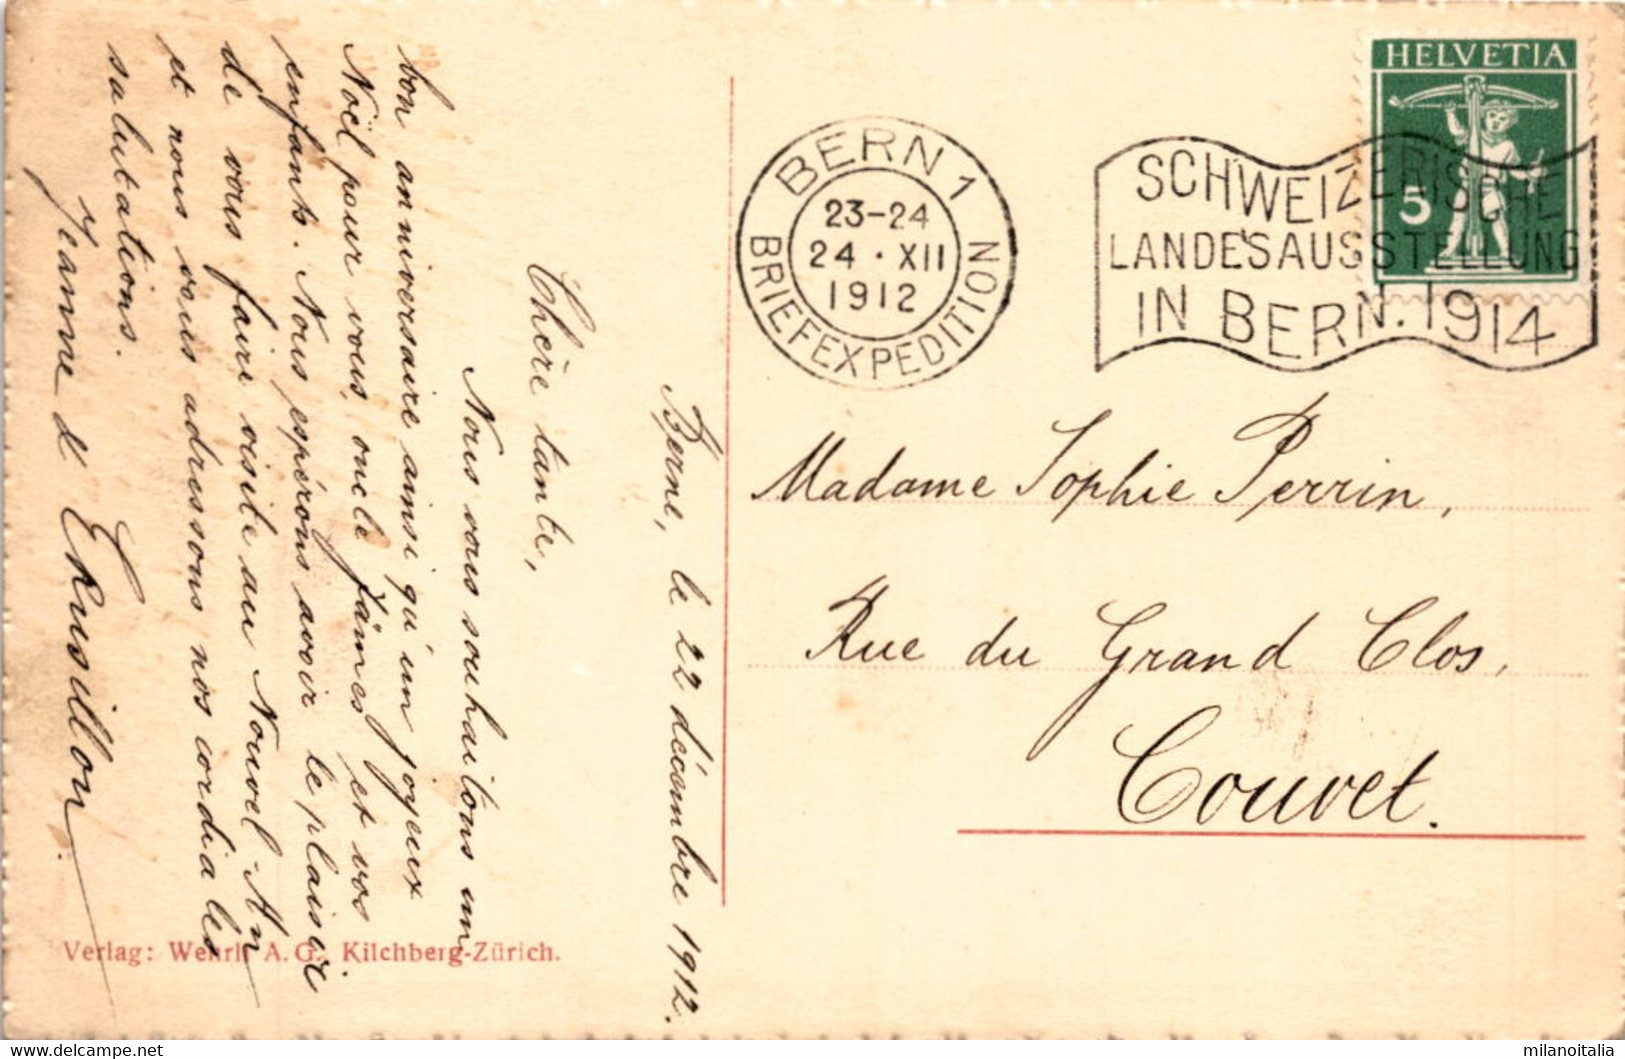 Berne, le 22 décembre 1912.
Chère tante,
Nous vous souhaitons un
bon anniversaire ainsi qu'un joyeux
Noël pour vous, oncle James et vos
enfants. Nous espérons avoir le plaisir
de vous faire visite au Nouvel-An
et nous vous adressons nos cordiales
salutations.
Jeanne &
Verlag: Wehrli A. G., Kilchberg-Zürich.
BERN 1
23-24
24 · XII
1912
BRIEFEXPEDITION
SCHWEIZERISCHE
LANDESAUSSTELLUNG
IN BERN. 1914
HELVETIA
5
Madame Sophie Perrin,
Rue du Grand Clos,
Couvet.
milanoitalia